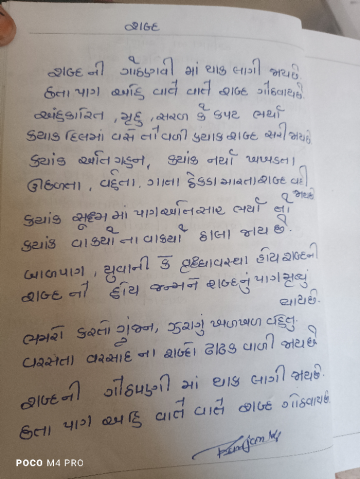 શબ્દ
શબ્દ ની ગોઠવણી માં થાક લાગી જાયછે
છતા પાગ અહિં વાતે વાતે શબ્દ ગોઠવાયછે
અહંકારિત, મૃદુ, સરળ કે કપટ ભર્યા
કયાક દિલમાં વસે તો વળી કયાક શબ્દ સરી જાયછે
કયાંક અતિ ગહન, કયાંક નર્યા
ઊછળતા, વહેતા, ગાતા ઠેકડા મારતા શબ્દ વહી જાયછે
કયાંક સૂક્ષ્મ માં પાગ અતિસાર ભર્યા તો
કયાંક વાકયો ના વાકયો ઠાલા જાય છે.
બાળપાગ, યુવાની કે વૃધ્ધાવસ્થા હોય શબ્દની
શબ્દ નો હોય જન્મને શબ્દનું પાગ મૃત્યું થાયછે.
ભમરો કરતો ગુંજન, ઝરાગું ખળખળ વહેતુ.
વરસતા વરસાદ ના શબ્દો ઠંઢક વાળી જાયછે
શબ્દ ની ગોઠવણી માં થાક લાગી જાયછે.
છતા પાગ અહિં વાતે વાતે શબ્દ ગોઠવાયછે.
POCO M4 PRO